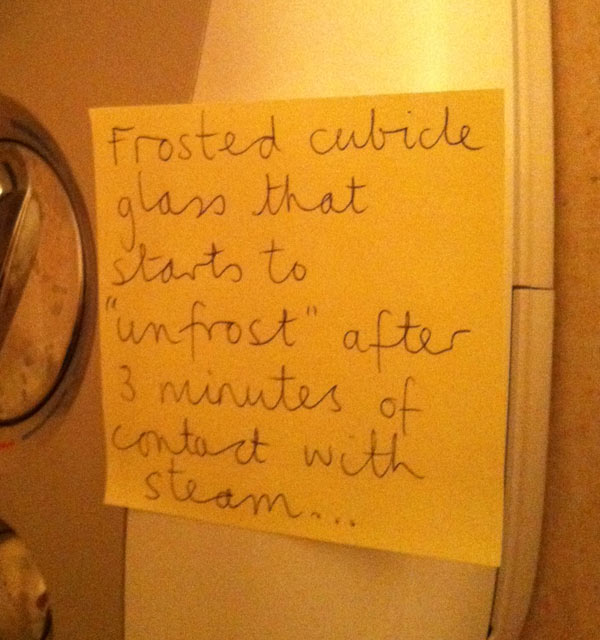 Frosted cubicle
glass that
starts to
"unfrost" after
3 minutes of
contact with
steam...